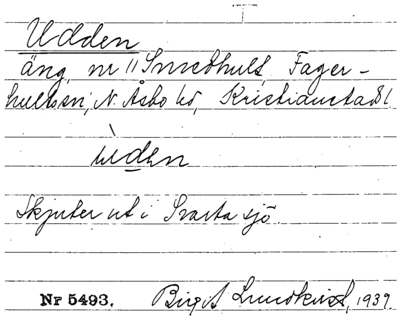 Udden
äng, nr 11 Smedhult, Fager-
hultssn; N. Åsbo hd, Kristianstads l
ùden
Skjuter ut i Svarta sjö.
Nr 5493. Birgit Lundkvist, 1937